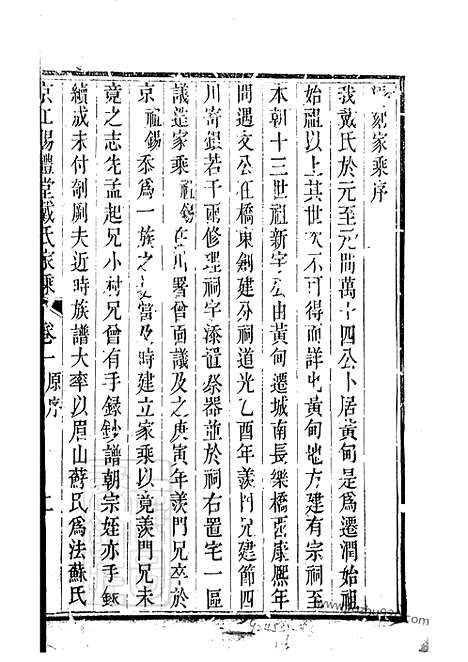 刻家乘序
我戴氏於元至元間萬十四公卜居黃甸是爲遷潤始祖
始祖以上其世次不可得而詳也黃甸地方建有宗祠至
本朝十三世祖新宇公由黃甸遷城南長樂橋西康熙年
間遇文公在橋東創建分祠道光乙酉年羨門兄建節四
川寄銀若干兩修理祠宇添置祭器並於祠右置宅一區
議造家乘祖錫在川署曾議及之庚寅年羨門兄卒於
京祖錫忝爲一族之長當及時建立家乘以竟羨門兄未
竟之志先孟起兄小村兄曾有手錄鈔譜朝宗姪亦手錄
續成未付剞劂夫近時族譜大率以眉山蘇氏爲法蘇氏
京江賜禮堂戴氏家乘
卷一原序